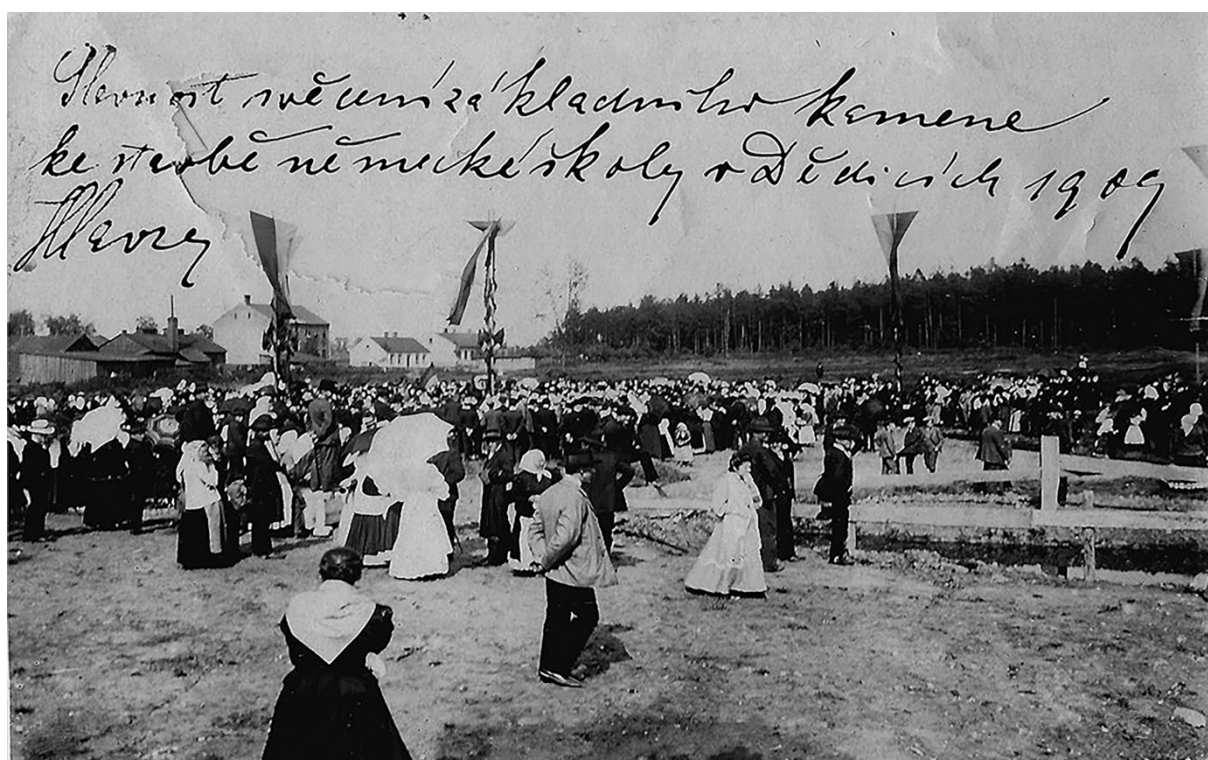 Slavnost svěcení základního kamene
ke stavbě německé školy v Dědicích 1909